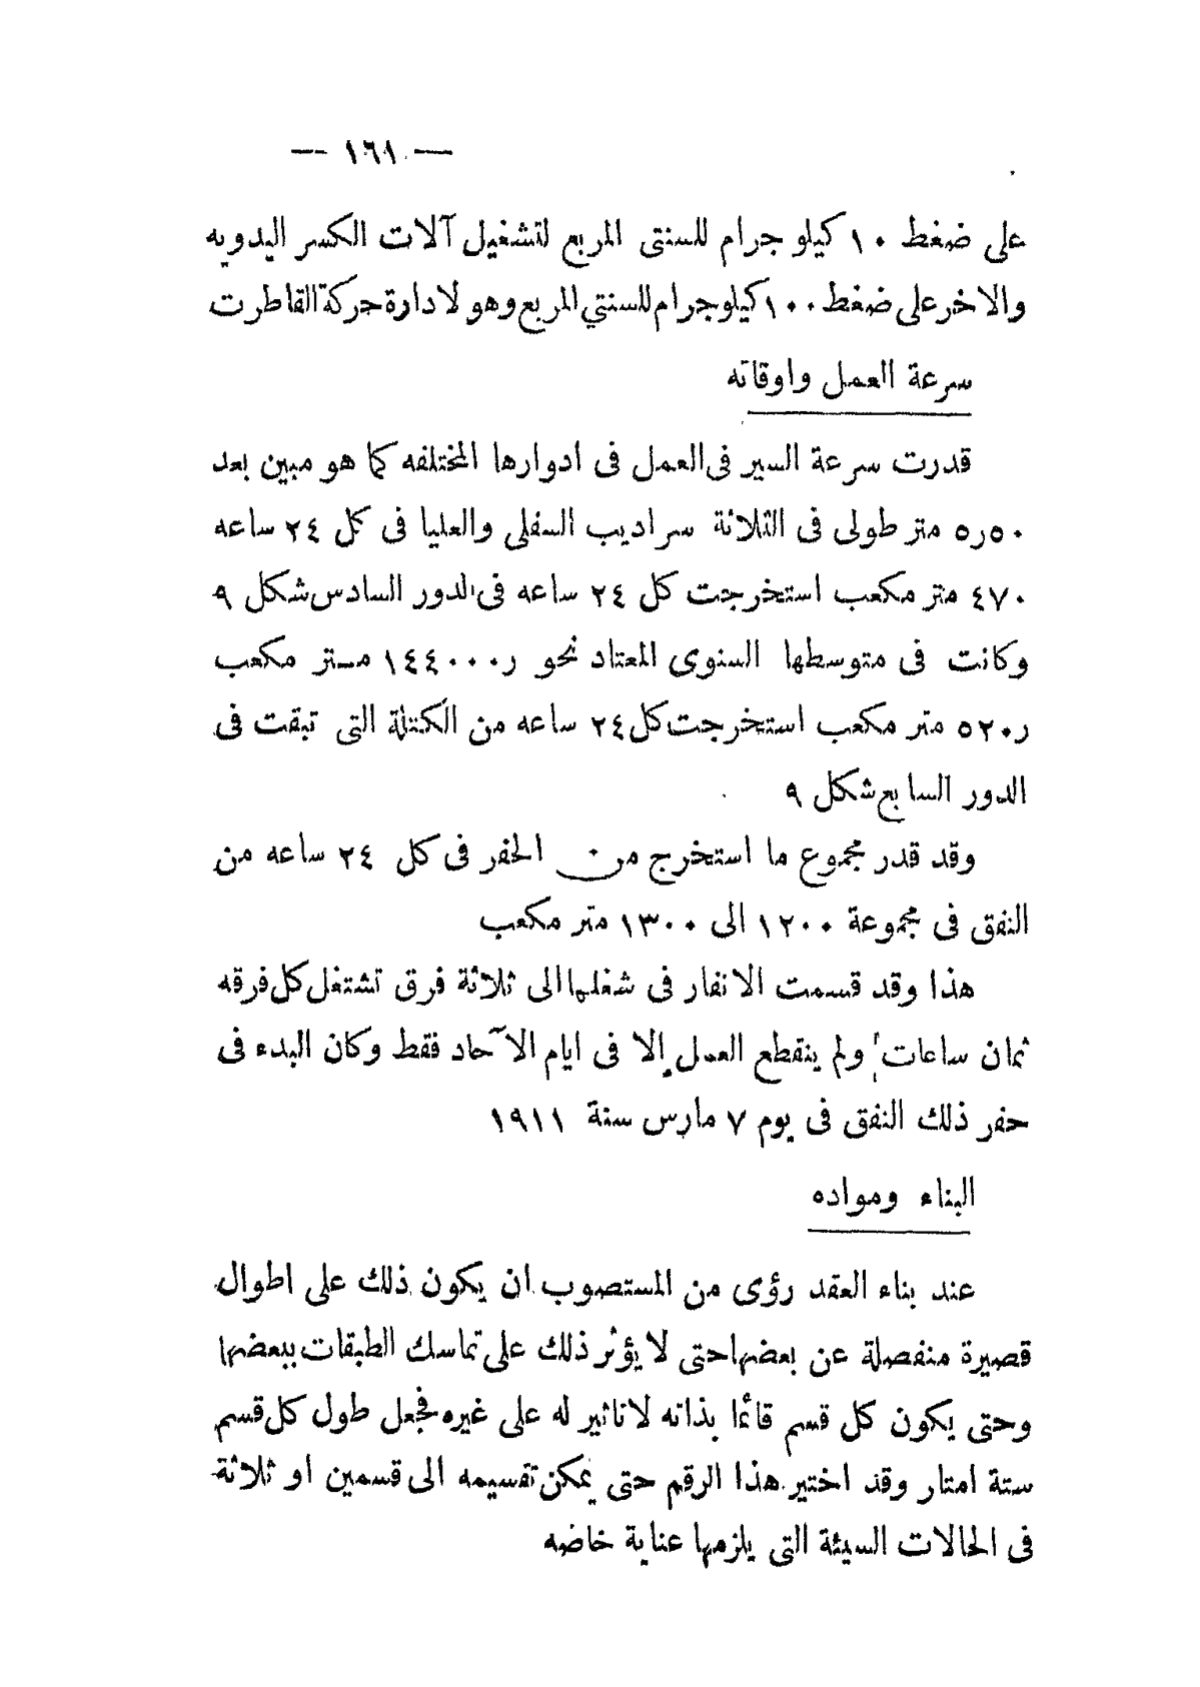 — ١٦١ —
على ضغط ١٠ كيلو جرام للسنتى المربع لتشغيل آلات الكسر اليدويه
والاخر على ضغط ١٠٠ كيلوجرام للسنتي المربع وهو لادارة حركة القاطرت
سرعة العمل واوقاته
قدرت سرعة السير فى العمل فى ادوارها المختلفه كما هو مبين بعد
٥ر٥٠ متر طولى فى الثلاثة سراديب السفلى والعليا فى كل ٢٤ ساعه
٤٧٠ متر مكعب استخرجت كل ٢٤ ساعه فى الدور السادس شكل ٩
وكانت فى متوسطها السنوى المعتاد نحو ر١٤٤٠٠٠ مــتر مكعب
ر٥٢٠ متر مكعب استخرجت كل ٢٤ ساعه من الكتلة التى تبقت فى
الدور السابع شكل ٩
وقد قدر مجموع ما استخرج من الحفر فى كل ٢٤ ساعه من
النفق فى مجموعة ١٢٠٠ الى ١٣٠٠ متر مكعب
هذا وقد قسمت الانفار فى شغلها الى ثلاثة فرق تشتغل كل فرقه
ثمان ساعات ولم ينقطع العمل إلا فى ايام الآحاد فقط وكان البدء فى
حفر ذلك النفق فى يوم ٧ مارس سنة ١٩١١
البناء ومواده
عند بناء العقد رؤى من المستصوب ان يكون ذلك على اطوال
قصيرة منفصلة عن بعضها حتى لا يؤثر ذلك على تماسك الطبقات ببعضها
وحتى يكون كل قسم قائما بذاته لا تاثير له على غيره فجعل طول كل قسم
ستة امتار وقد اختير هذا الرقم حتى يمكن تقسيمه الى قسمين او ثلاثة
فى الحالات السيئة التى يلزمها عناية خاضه